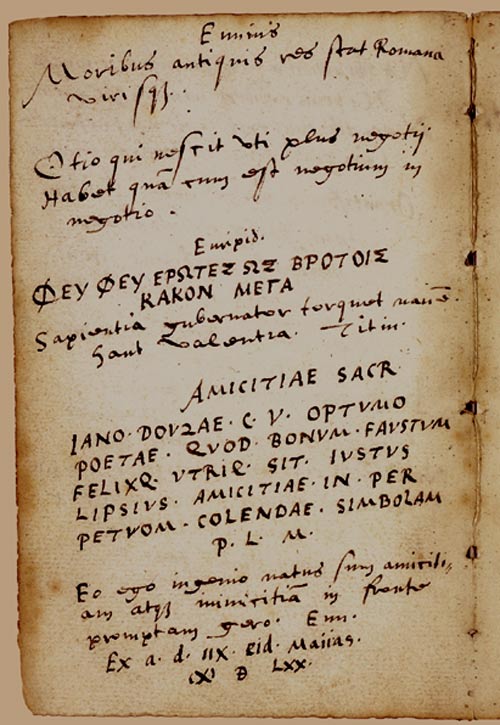 Ennius
Moribus antiquis res stat Romana
Virisq₃.
Otio qui nescit vti plus negotij
Habet quã cum est negotium in
negotio.
Euripid.
ΦΕΥ ΦΕΥ ΕΡΩΤΕΣ ΩΣ ΒΡΟΤΟΙΣ
ΚΑΚΟΝ ΜΕΓΑ
Sapientia gubernator torquet nauẽ.
haut Valentia. Titin.
AMICITIAE SACR
IANO · DOVZAE · C V · OPTVMO
POETAE · QVOD · BONVM · FAVSTVM
FELIXQ · VTRIQ · SIT · IVSTVS
LIPSIVS · AMICITIAE · IN · PER
PETVOM · COLENDAE · SIMBOLAM
P. L. M.
Eo ego ingenio natus sum amiciti,
am atq₃ inimicitiã in fronte
promptam gero. Enn.
Ex a. d. IIX. Eid. Maiias.
(X) D LXX.